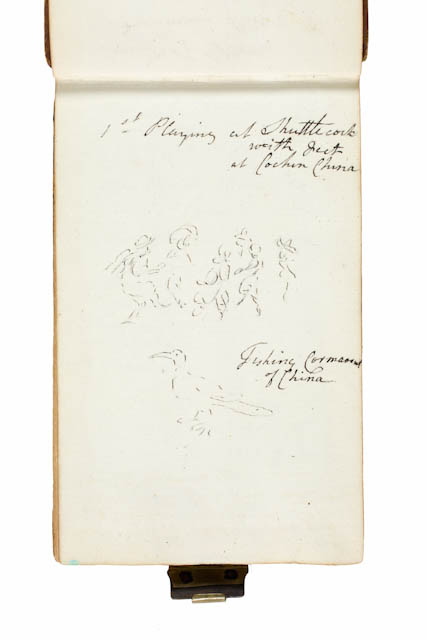 1st Playing at Shuttlecock
with feet
at Cochin China
Fishing Cormorant
of China